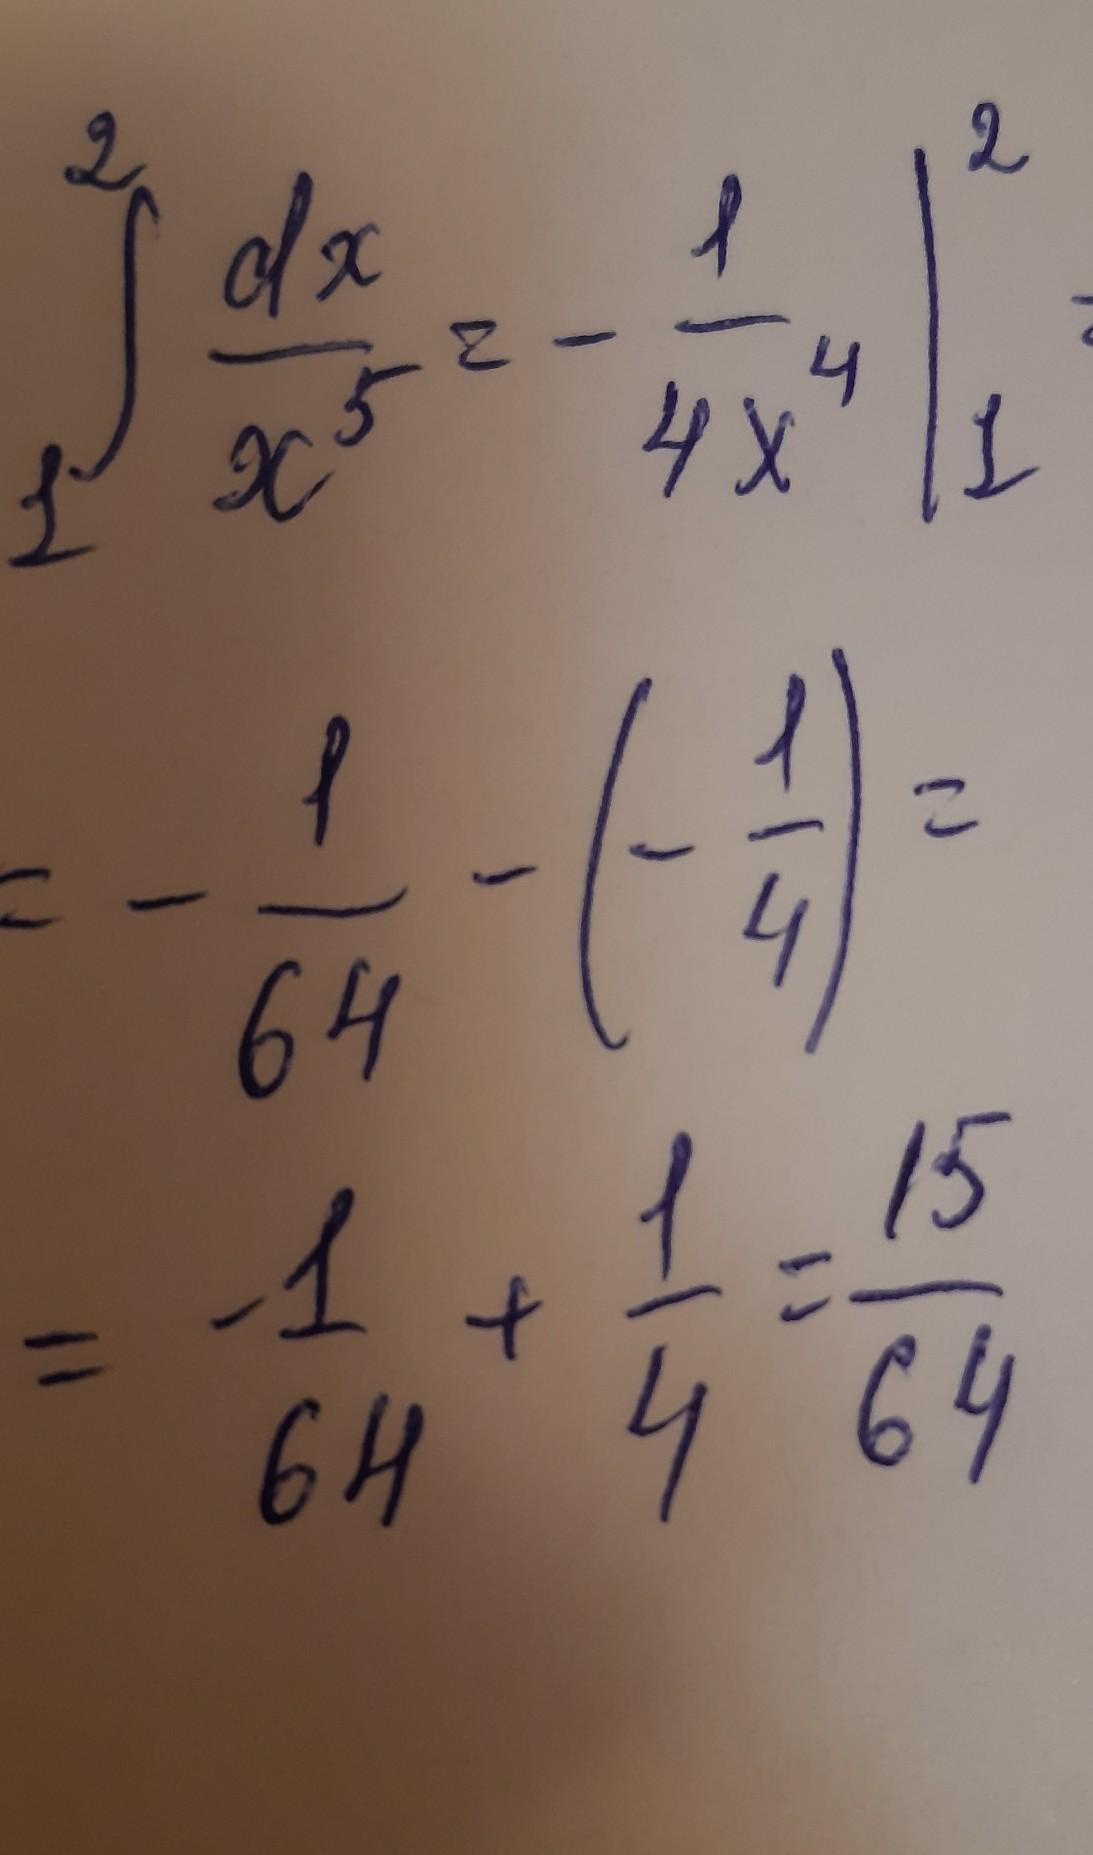 ∫₁² dx/x⁵ = - 1/4x⁴ |₁² =
= - 1/64 - (- 1/4) =
= - 1/64 + 1/4 = 15/64